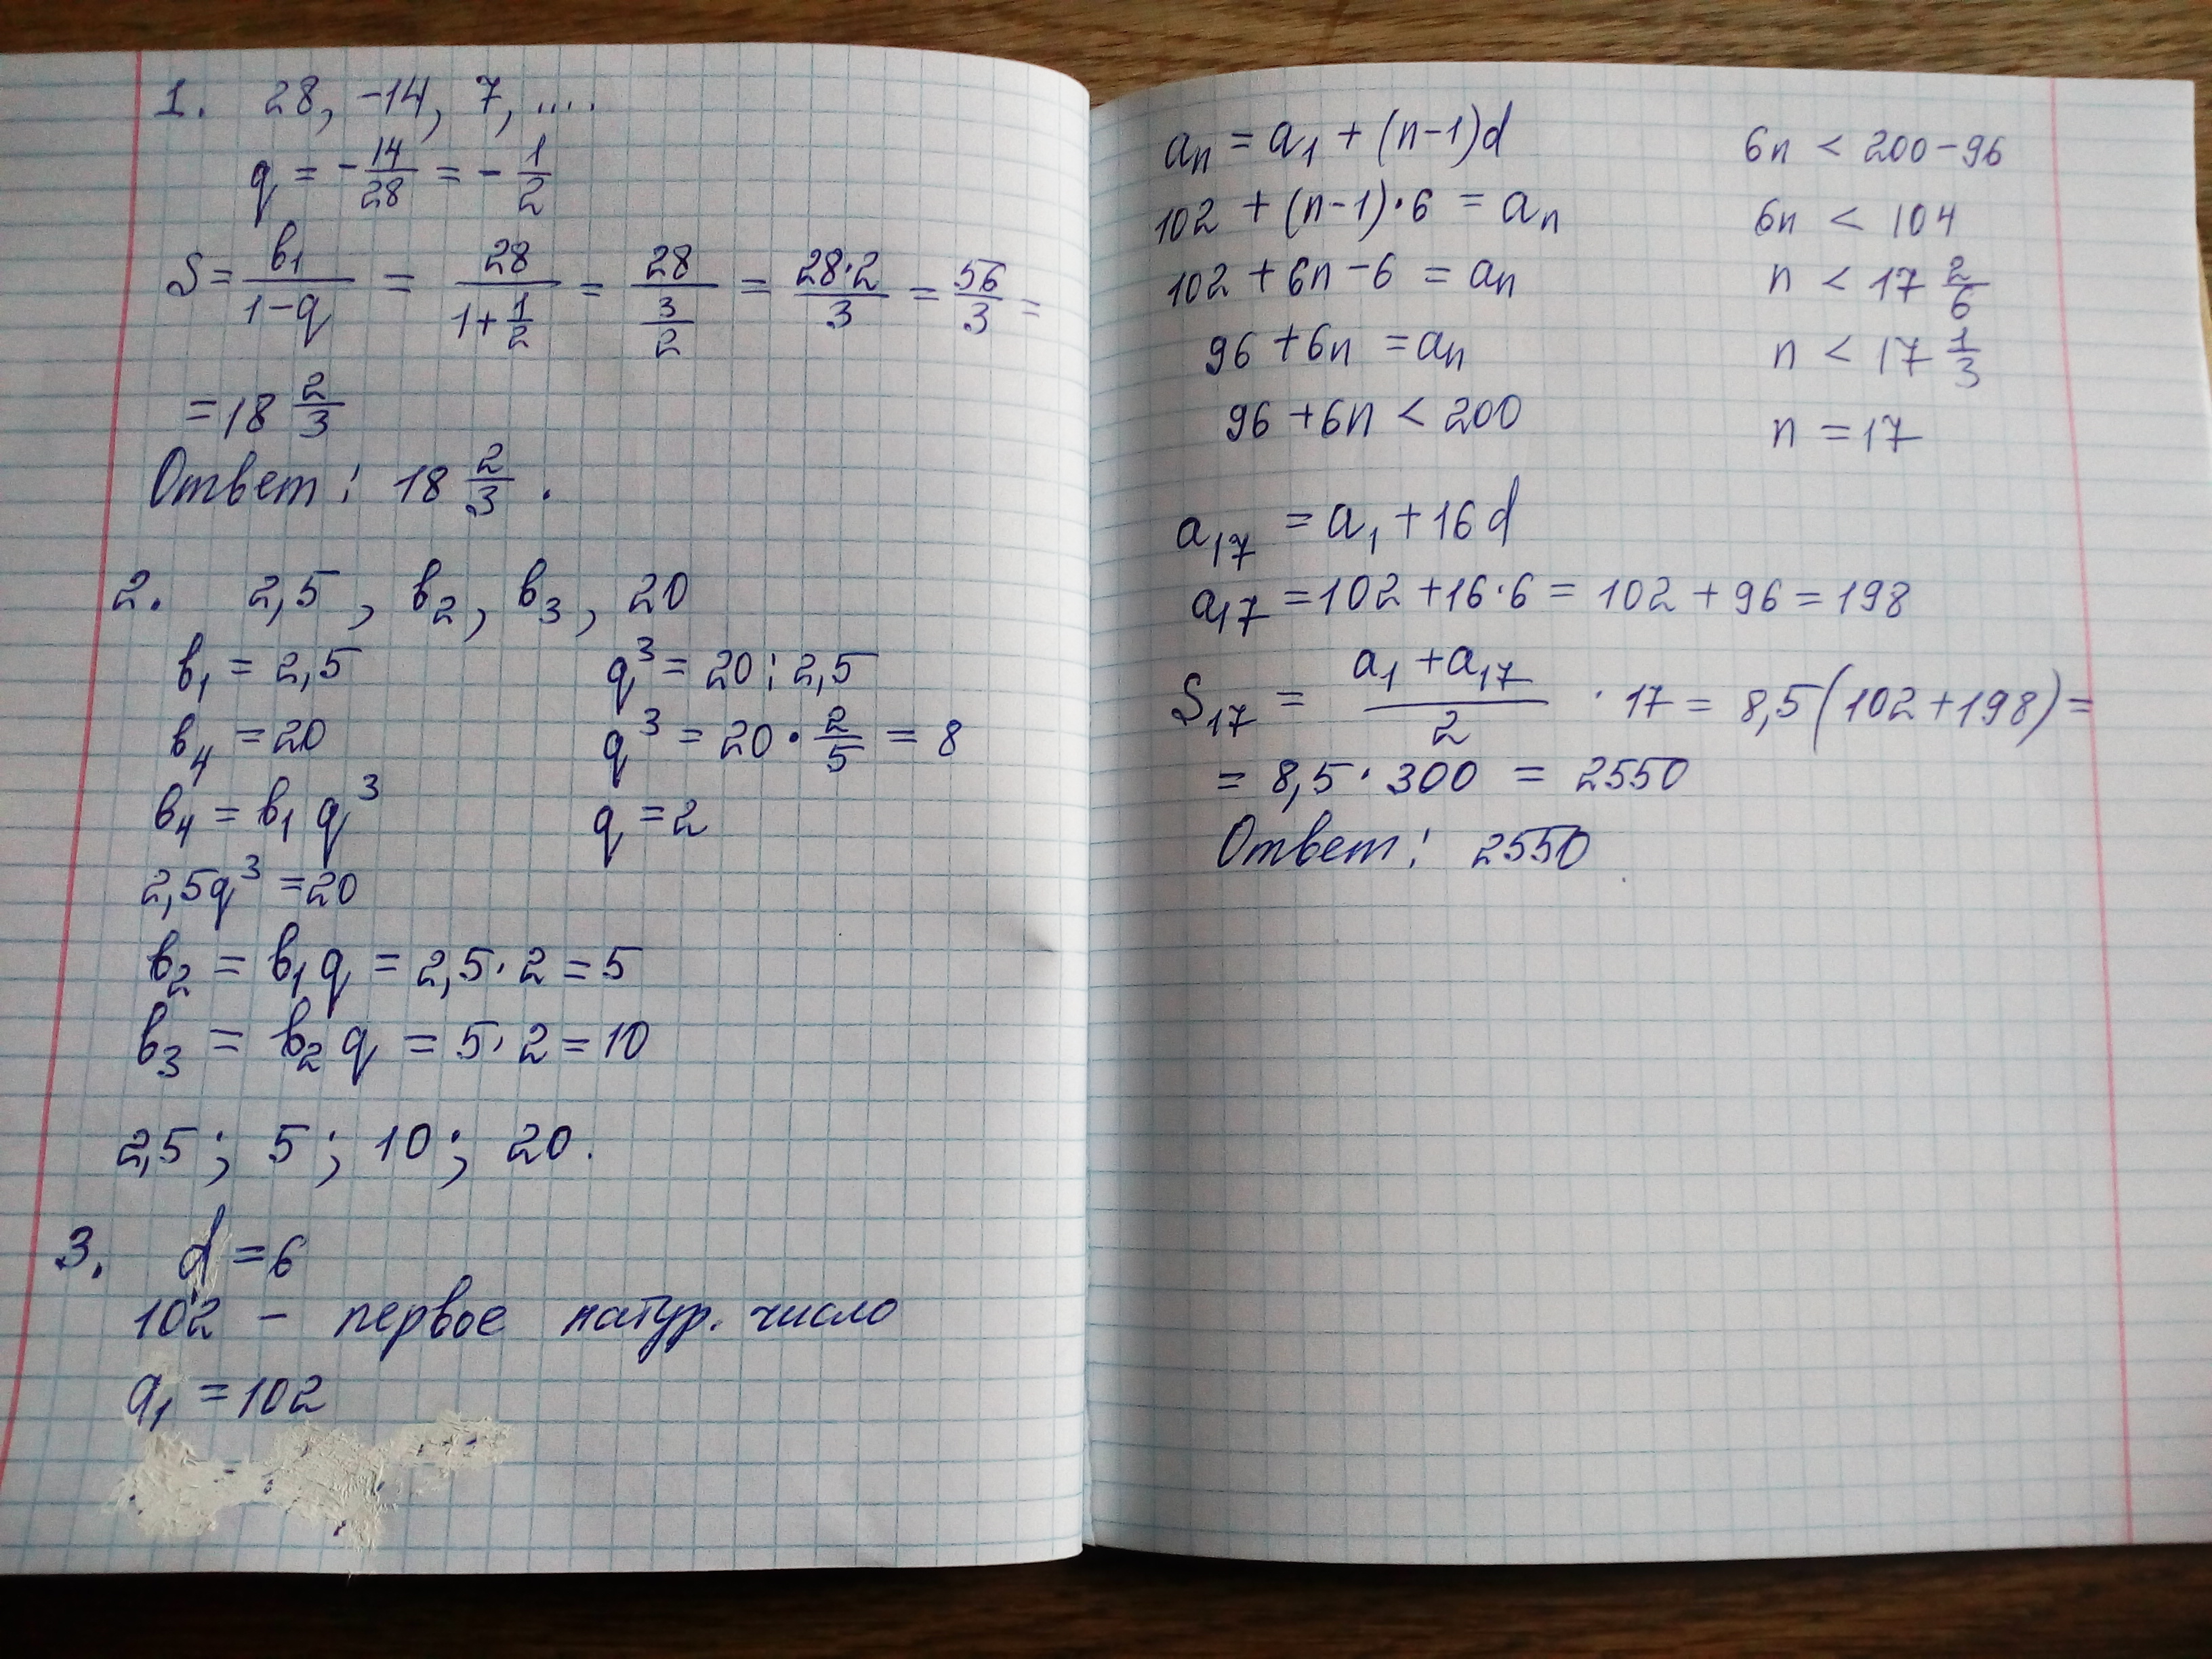 1. 28, -14, 7, ....
q = -14/28 = -1/2
S = b₁/(1-q) = 28/(1+1/2) = 28/(3/2) = 28·2/3 = 56/3 =
= 18 2/3
Ответ: 18 2/3.
2. 2,5, b₂, b₃, 20
b₁ = 2,5
b₄ = 20
b₄ = b₁ q³
2,5q³ = 20
q³ = 20 : 2,5
q³ = 20 · 2/5 = 8
q = 2
b₂ = b₁ q = 2,5 · 2 = 5
b₃ = b₂ q = 5 · 2 = 10
2,5; 5; 10; 20.
3. d = 6
102 - первое натур. число
a₁ = 102
aₙ = a₁ + (n-1)d
102 + (n-1)·6 = aₙ
102 + 6n - 6 = aₙ
96 + 6n = aₙ
96 + 6n < 200
6n < 200-96
6n < 104
n < 17 2/6
n < 17 1/3
n = 17
a₁₇ = a₁ + 16d
a₁₇ = 102 + 16·6 = 102 + 96 = 198
S₁₇ = (a₁ + a₁₇)/2 · 17 = 8,5(102+198) =
= 8,5 · 300 = 2550
Ответ: 2550